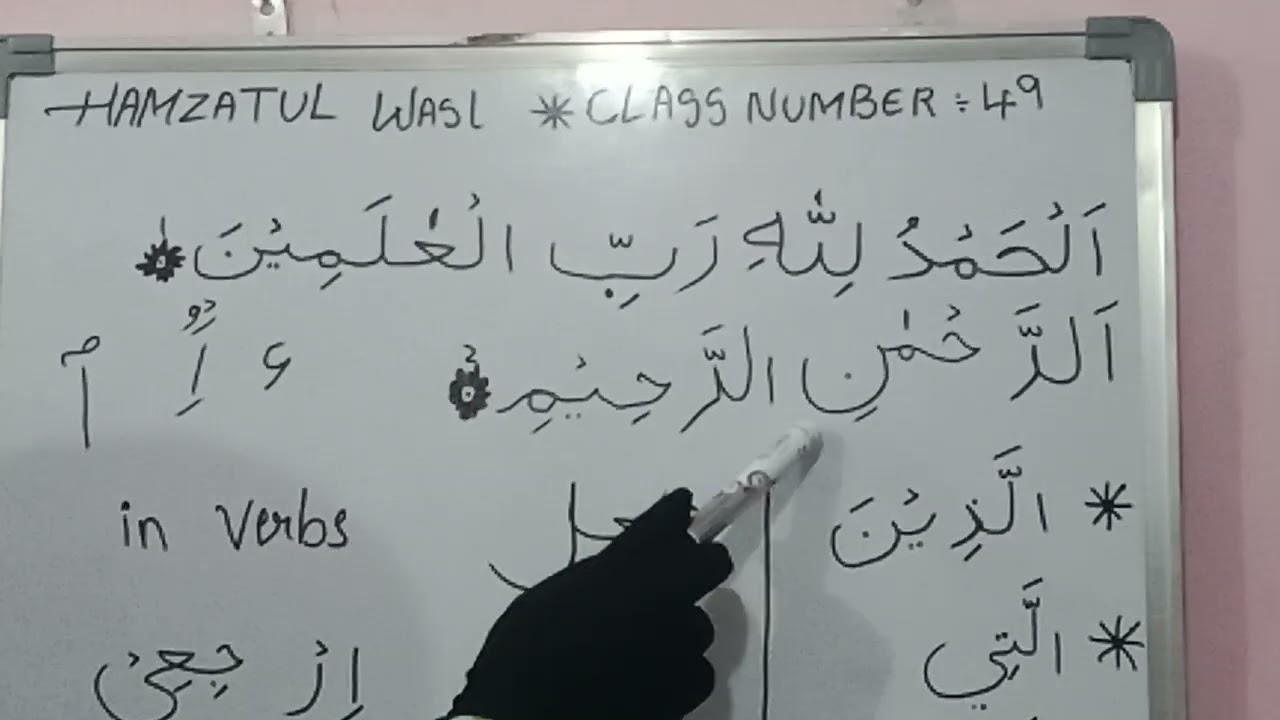 HAMZATUL WASL * CLASS NUMBER ÷ 49
اَلْحَمْدُ لِلّٰهِ رَبِّ الْعٰلَمِيْنَ ١
اَلرَّحْمٰنِ الرَّحِيْمِ 2 ء
* الَّذِيْنَ
in Verbs
* الَّتِي
اِرْجِعِيْ